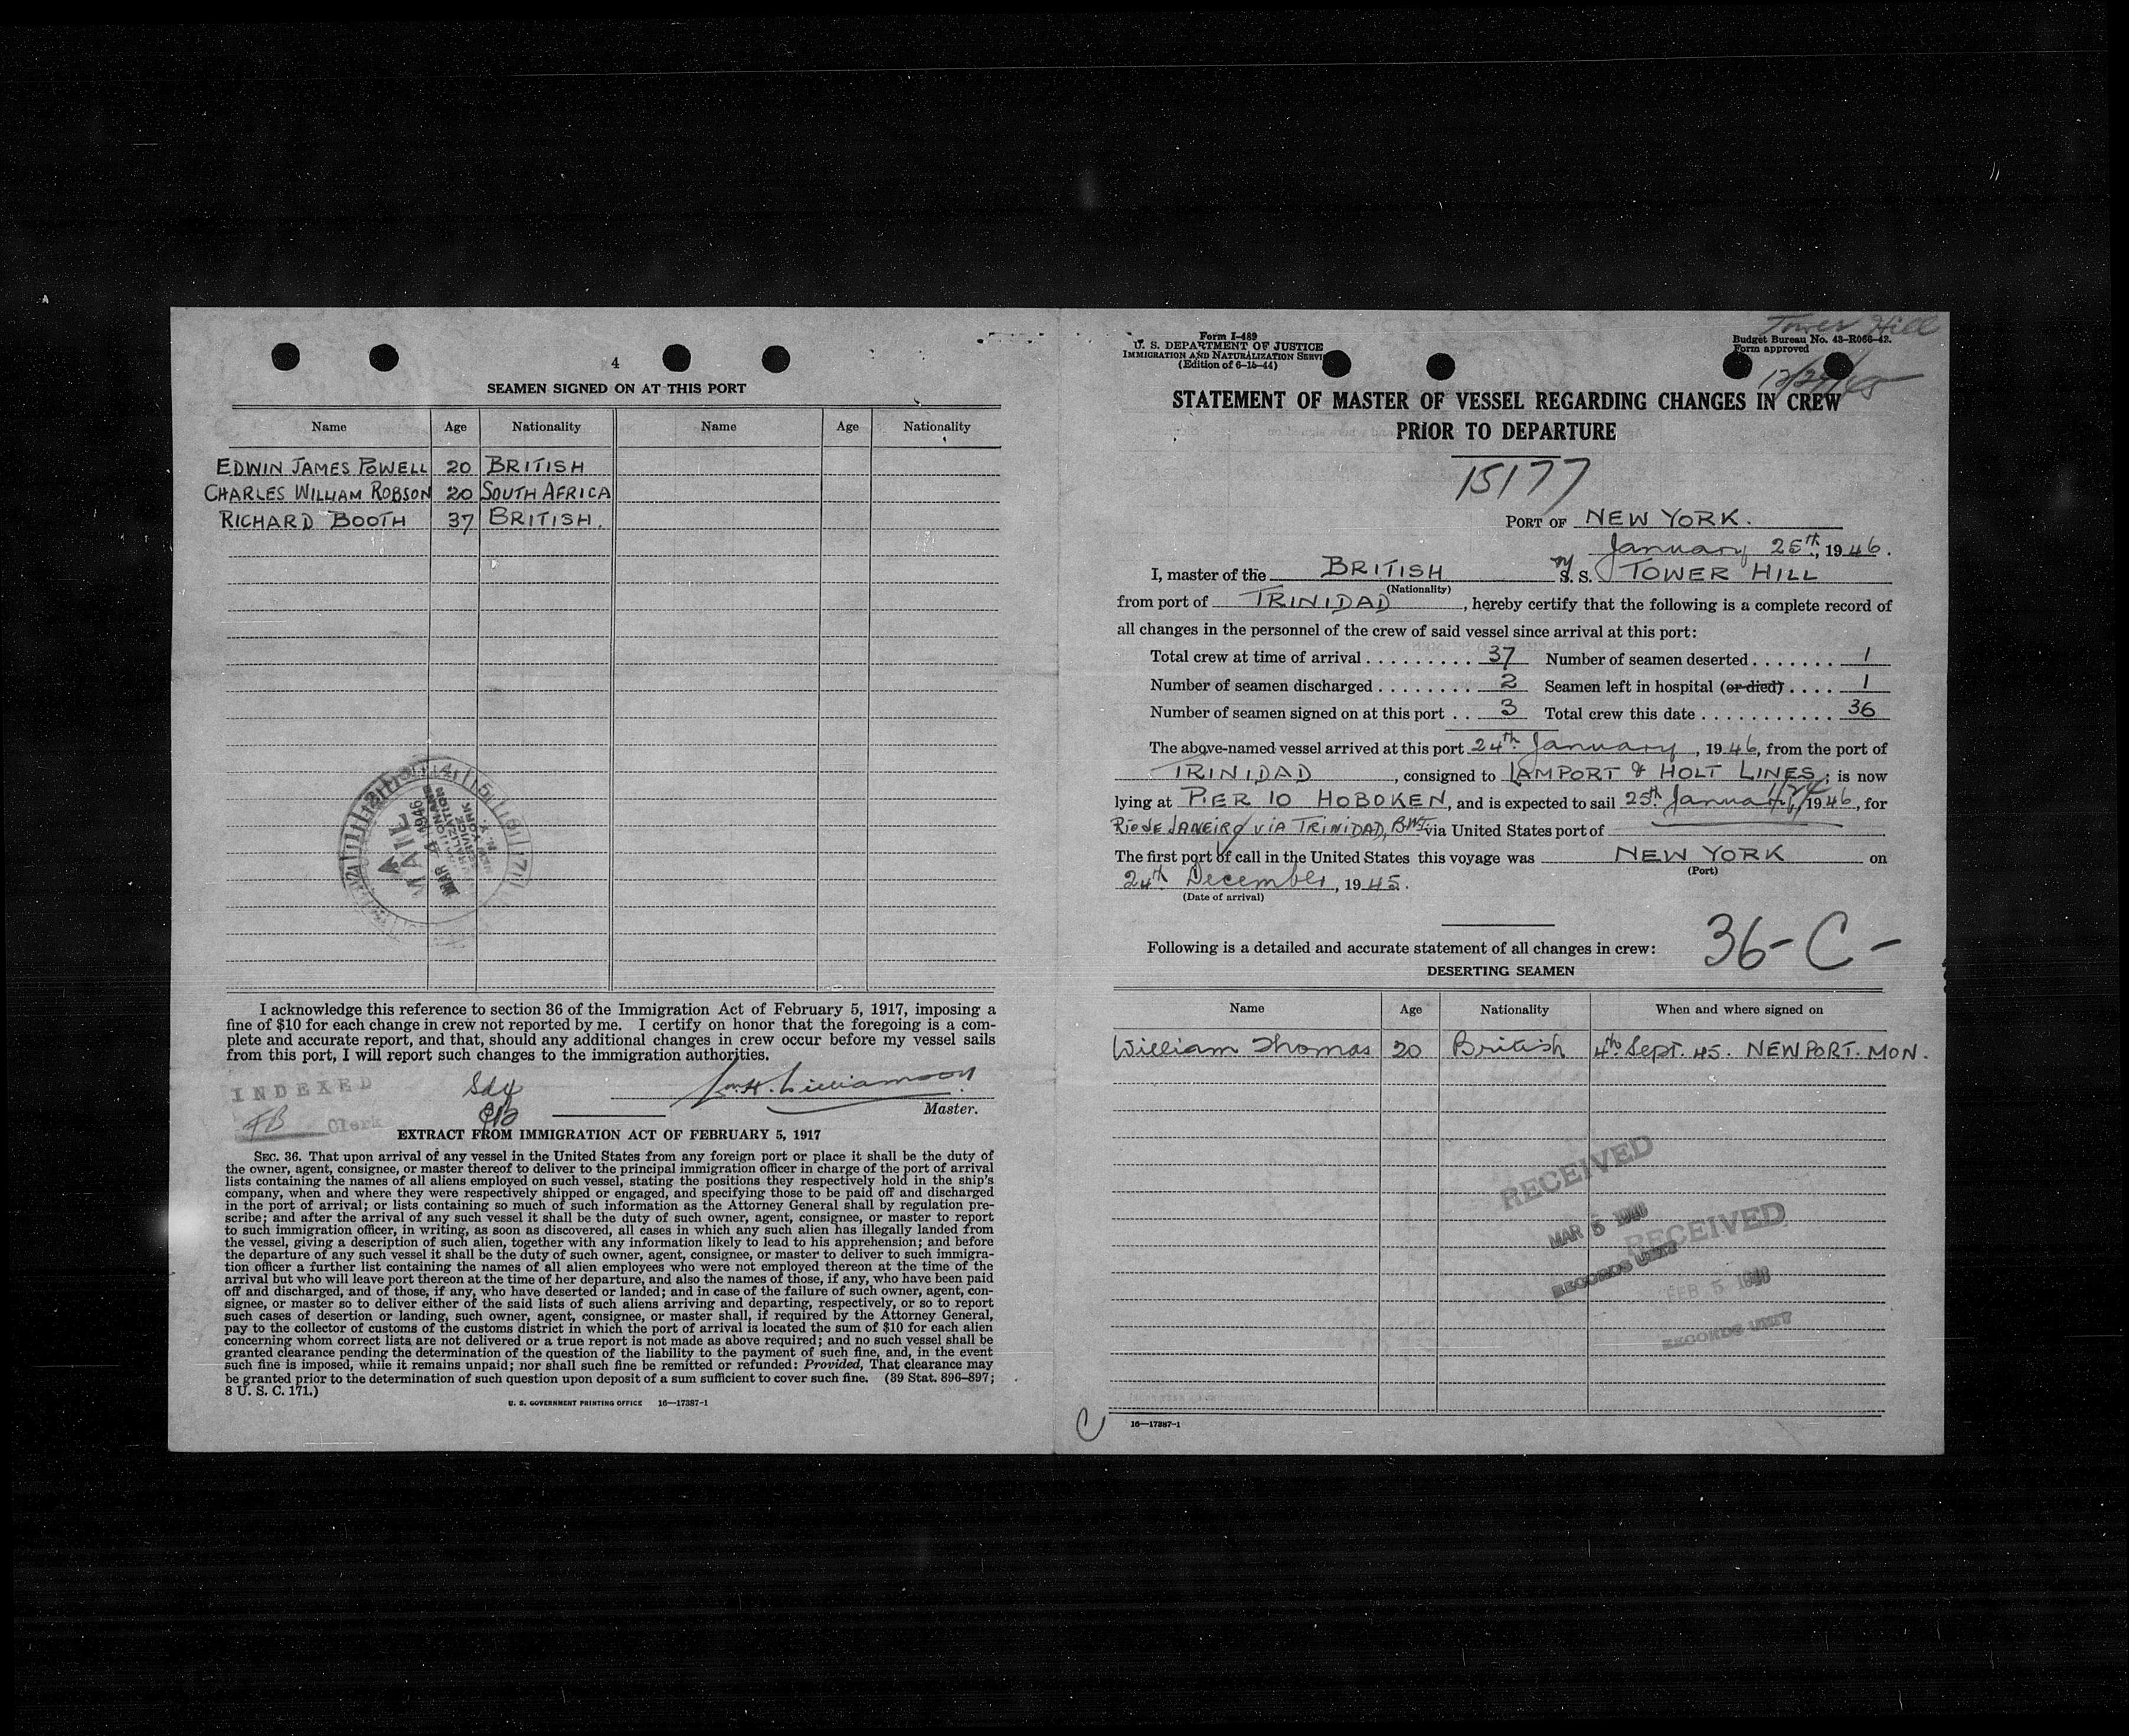 4
SEAMEN SIGNED ON AT THIS PORT
Name Age Nationality Name Age Nationality
EDWIN JAMES POWELL 20 BRITISH
CHARLES WILLIAM ROBSON 20 SOUTH AFRICA
RICHARD BOOTH 37 BRITISH.
MAR 4 1946
I acknowledge this reference to section 36 of the Immigration Act of February 5, 1917, imposing a
fine of $10 for each change in crew not reported by me. I certify on honor that the foregoing is a com-
plete and accurate report, and that, should any additional changes in crew occur before my vessel sails
from this port, I will report such changes to the immigration authorities.
INDEXED
FB Clerk
Wm H. Williamson
Master.
EXTRACT FROM IMMIGRATION ACT OF FEBRUARY 5, 1917
SEC. 36. That upon arrival of any vessel in the United States from any foreign port or place it shall be the duty of
the owner, agent, consignee, or master thereof to deliver to the principal immigration officer in charge of the port of arrival
lists containing the names of all aliens employed on such vessel, stating the positions they respectively hold in the ship's
company, when and where they were respectively shipped or engaged, and specifying those to be paid off and discharged
in the port of arrival; or lists containing so much of such information as the Attorney General shall by regulation pre-
scribe; and after the arrival of any such vessel it shall be the duty of such owner, agent, consignee, or master to report
to such immigration officer, in writing, as soon as discovered, all cases in which any such alien has illegally landed from
the vessel, giving a description of such alien, together with any information likely to lead to his apprehension; and before
the departure of any such vessel it shall be the duty of such owner, agent, consignee, or master to deliver to such immigra-
tion officer a further list containing the names of all alien employees who were not employed thereon at the time of the
arrival but who will leave port thereon at the time of her departure, and also the names of those, if any, who have been paid
off and discharged, and of those, if any, who have deserted or landed; and in case of the failure of such owner, agent, con-
signee, or master so to deliver either of the said lists of such aliens arriving and departing, respectively, or so to report
such cases of desertion or landing, such owner, agent, consignee, or master shall, if required by the Attorney General,
pay to the collector of customs of the customs district in which the port of arrival is located the sum of $10 for each alien
concerning whom correct lists are not delivered or a true report is not made as above required; and no such vessel shall be
granted clearance pending the determination of the question of the liability to the payment of such fine, and, in the event
such fine is imposed, while it remains unpaid; nor shall such fine be remitted or refunded: Provided, That clearance may
be granted prior to the determination of such question upon deposit of a sum sufficient to cover such fine. (39 Stat. 896–897;
8 U. S. C. 171.)
U. S. GOVERNMENT PRINTING OFFICE 16—17387-1
Tower Hill
Form I-489
U. S. DEPARTMENT OF JUSTICE
IMMIGRATION AND NATURALIZATION SERVI
(Edition of 6-15-44)
Budget Bureau No. 43-R066-42.
Form approved
12/24/45
STATEMENT OF MASTER OF VESSEL REGARDING CHANGES IN CREW
PRIOR TO DEPARTURE
15177
PORT OF NEW YORK.
January 25th, 1946.
I, master of the BRITISH M S. S. TOWER HILL
(Nationality)
from port of TRINIDAD, hereby certify that the following is a complete record of
all changes in the personnel of the crew of said vessel since arrival at this port:
Total crew at time of arrival . . . . . . . . . 37 Number of seamen deserted . . . . . . . 1
Number of seamen discharged . . . . . . . . 2 Seamen left in hospital (or died) . . . . 1
Number of seamen signed on at this port . . 3 Total crew this date . . . . . . . . . . . 36
The above-named vessel arrived at this port 24th January, 1946, from the port of
TRINIDAD, consigned to LAMPORT & HOLT LINES; is now
lying at PIER 10 HOBOKEN, and is expected to sail 25th January, 1946, for
RIO DE JANEIRO VIA TRINIDAD, BWI via United States port of
The first port of call in the United States this voyage was NEW YORK on
(Port)
24th December, 1945.
(Date of arrival)
Following is a detailed and accurate statement of all changes in crew:
36-C-
DESERTING SEAMEN
Name Age Nationality When and where signed on
William Thomas 20 British 4th Sept. 45. NEWPORT. MON.
RECEIVED
MAR 5
RECORDS UNIT
RECEIVED
FEB 5
RECORDS UNIT
C
16—17387-1